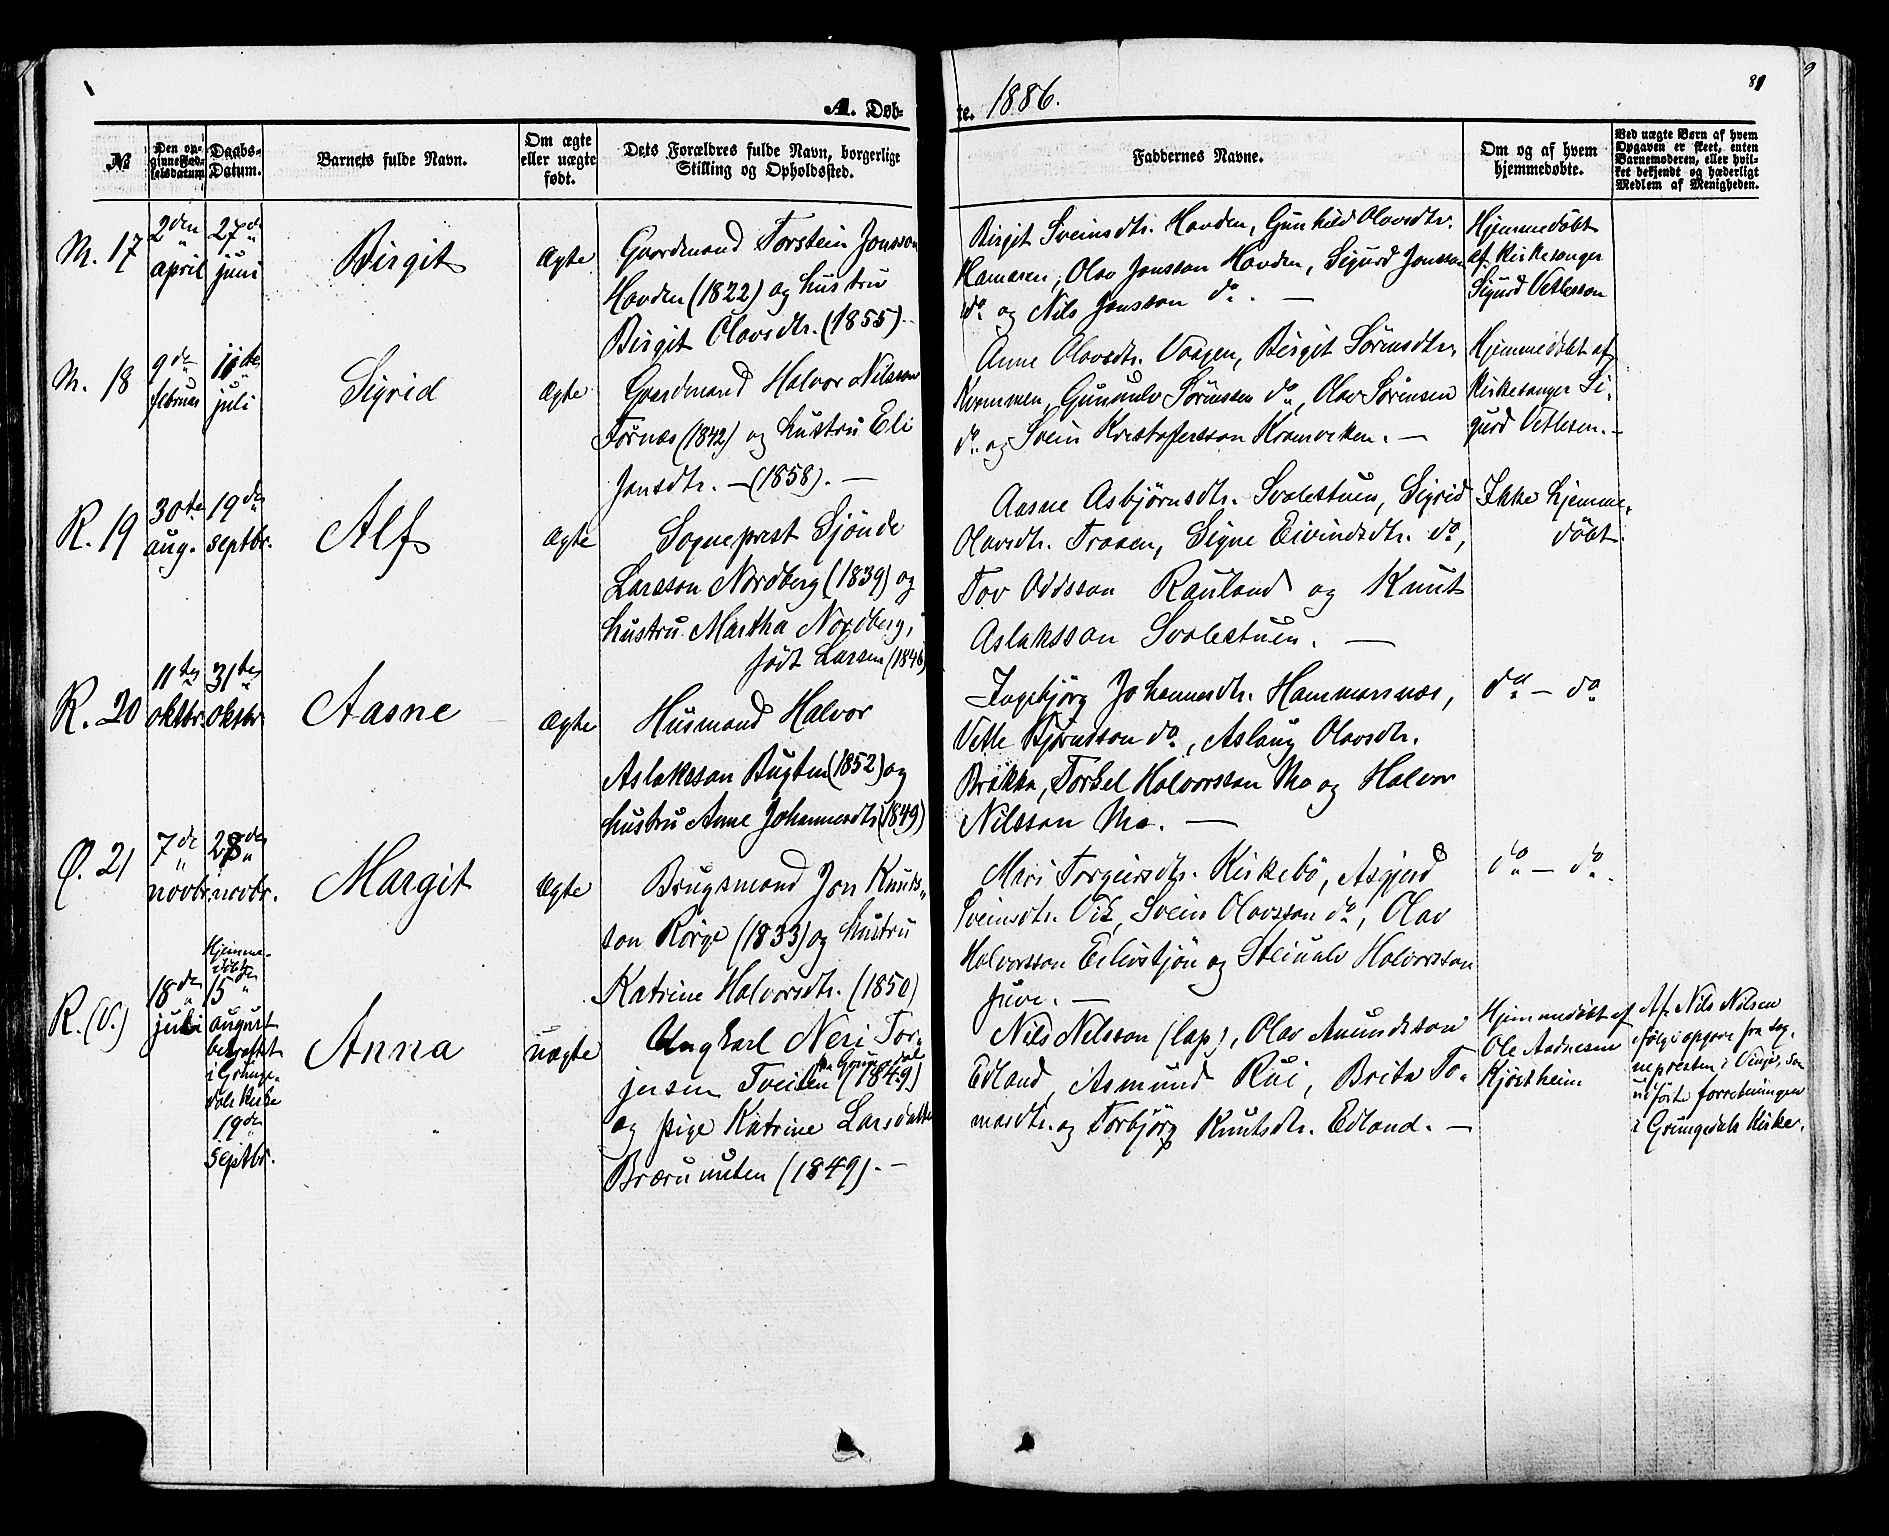 A. Døb-
te. 1886.
81
9
№
Den op-
givne Fød-
selsdatum.
Daabs-
Datum.
Barnets fulde Navn.
Om ægte
eller uægte
født.
Dets Forældres fulde Navn, borgerlige
Stilling og Opholdssted.
Faddernes Navne.
Om og af hvem
hjemmedøbte.
Ved uægte Børn af hvem
Opgaven er skeet, enten
Barnemoderen, eller hvil-
ket bekjendt og hæderligt
Medlem af Menigheden.
M. 17
2den
april
27de
juni
Birgit
Ægte
Gaardmand Torstein Jonsson
Hovden (1822) og hustru
Birgit Olavsdtr. (1855).-
Birgit Sveinsdtr. Hovden, Gunhild Olavsdtr.
Hameren, Olav Jonsson Hovden, Sigurd Jonsson
do og Nils Jonsson do. —
Hjemmedøbt
af Kirkesanger
Sigurd Vetleson
M. 18
9de
februar
11te
juli
Sigrid
Ægte
Gaardmand Halvor Nilsson
Førnæs (1842) og hustru Eli
Jonsdtr. — (1858). —
Anne Olavsdtr. Vaagen, Birgit Sørensdtr.
Kvammen, Gunnulv Sørensen do, Olav Sørensen
do. og Svein Kristoffersson Kromviken. —
Hjemmedøbt af
Kirkesanger Si-
gurd Vetleson. -
R. 19
30te
aug.
19de
septbr.
Alf
Ægte
Sogneprest Sjønde
Larsson Nordberg (1839) og
hustru Martha Nordberg,
født Larsen (1846)
Aasne Asbjørnsdtr. Svalestuen, Sigrid
Olavsdtr. Traaen, Signe Eivindsdtr. do,
Tov Oddsson Rauland og Knut
Aslaksson Svalestuen. —
Ikke hjemme-
døbt.
R. 20
11te
oktbr.
31te
oktbr.
Aasne
Ægte
Husmand Halvor
Aslaksson Bugten (1852) og
hustru Anne Johannesdtr. (1849)
Ingebjörg Johannesdtr. Hammersnæs,
Vetle Bjørnsson do, Aslaug Olavsdtr.
Brakka, Torkel Halvorsson Mo og Halvor
Nilsson Mo. —
do — do
Ø. 21
7de
novbr.
28de
novbr.
Margit
Ægte
Brugsmand Jon Knuts-
son Rørge (1833) og hustru
Katrine Halvorsdtr. (1850)
Mari Torgeirsdtr. Kirkebø, Asgjerd
Sveinsdtr. Vik, Svein Olavsson do, Olav
Halvorsson Eilevstjøn og Steinulv Halvorsson
Juve. —
do — do.
R. (V.)
18de
juli
Hjemme-
døbt
15de
august
bekræftet
i Grunge-
dals Kirke
19de
septbr.
Anna
uægte
Ungkarl Neri Tor-
fra Grungedal
jersen Tveiten (1849)
og pige Katrine Larsdatter
Bærunuten (1849). —
Nils Nilsson (lap), Olav Amundsson
Edland, Asmund Rui, Brita To-
masdtr. og Torbjörg Knutsdtr. Edland. —
Hjemmedøbt af
Ole Aadnesen
Kjøstheim
Af Nils Nilsen
ifølge opgave fra Sog-
nepresten i Vinje, som
udførte forretningen
i Grungedals Kirke.